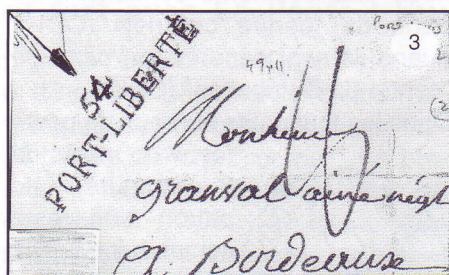 3
54
PORT-LIBERTÉ
49yll.
Monsieur
granval ainé négt
A Bordeaux